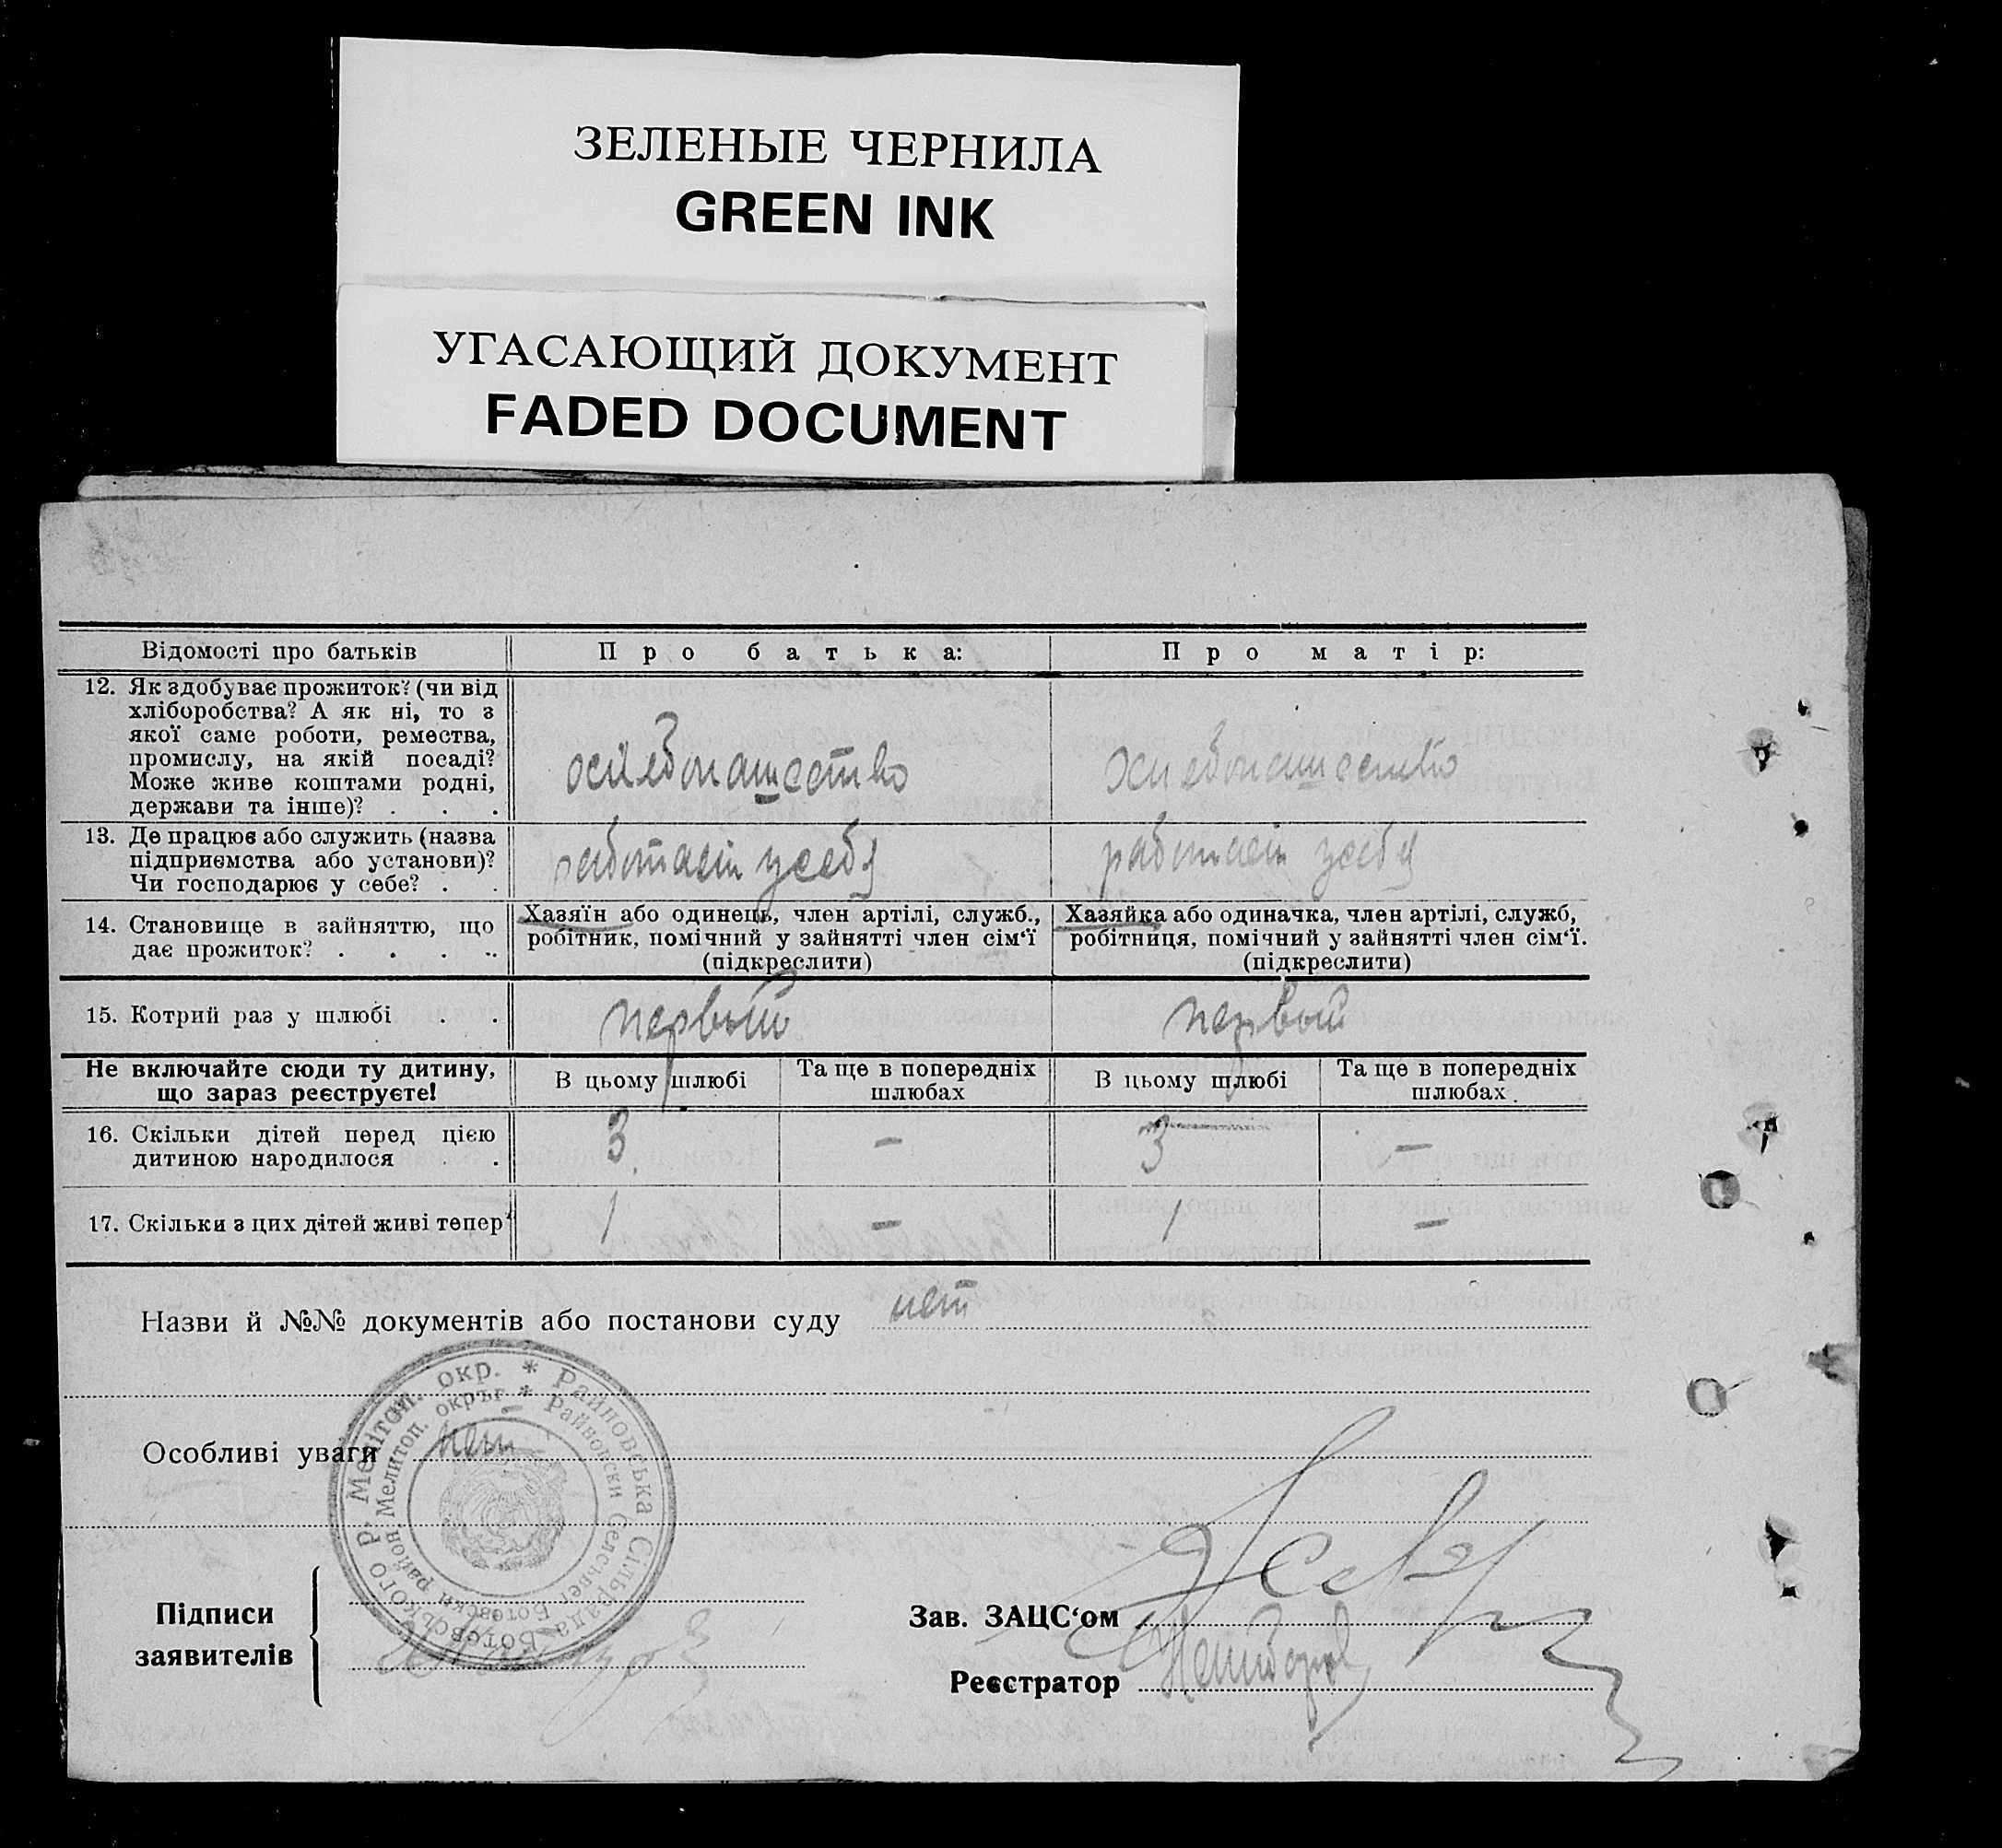 ЗЕЛЕНЫЕ ЧЕРНИЛА
GREEN INK
УГАСАЮЩИЙ ДОКУМЕНТ
FADED DOCUMENT
Відомості про батьків
Про батька:
Про матір:
12. Як здобуває прожиток? (чи від
хліборобства? А як ні, то з
якої саме роботи, ремества,
промислу, на якій посаді?
Може живе коштами родні,
держави та інше)? . . .
13. Де працює або служить (назва
підприємства або установи)?
Чи господарює у себе? . .
работает у себя
работает у себя
14. Становище в зайняттю, що
дає прожиток? . . . .
Хазяїн або одинець, член артілі, служб.,
робітник, помічний у зайнятті член сім‘ї
(підкреслити)
Хазяйка або одиначка, член артілі, служб,
робітниця, помічний у зайнятті член сім‘ї.
(підкреслити)
15. Котрий раз у шлюбі . .
первый
первый
Не включайте сюди ту дитину,
що зараз реєструєте!
В цьому шлюбі
Та ще в попередніх
шлюбах
В цьому шлюбі
Та ще в попередніх
шлюбах.
16. Скільки дітей перед цією
дитиною народилося . .
3 — 3 —
17. Скільки з цих дітей живі тепер?
1 — 1 —
Назви й №№ документів або постанови суду нет
Особливі уваги нет
Мелітоп. окр. * Райновська Сільрада Ботевського Р.
Мелитоп. окръг * Райновски Селсъвет Ботевски район
Підписи
заявителів
Зав. ЗАЦС‘ом
Реєстратор